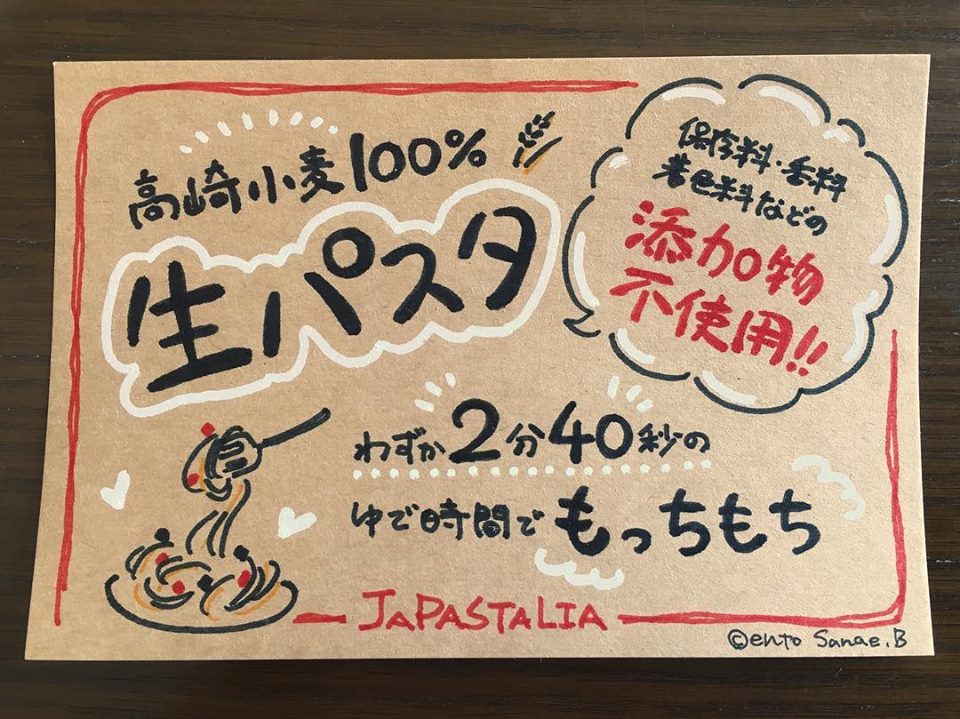 高崎小麦100%
生パスタ
保存料・香料
着色料などの
添加物
不使用!!
わずか2分40秒の
ゆで時間でもっちもち
JaPaSTaLIA
©ento Sanae.B